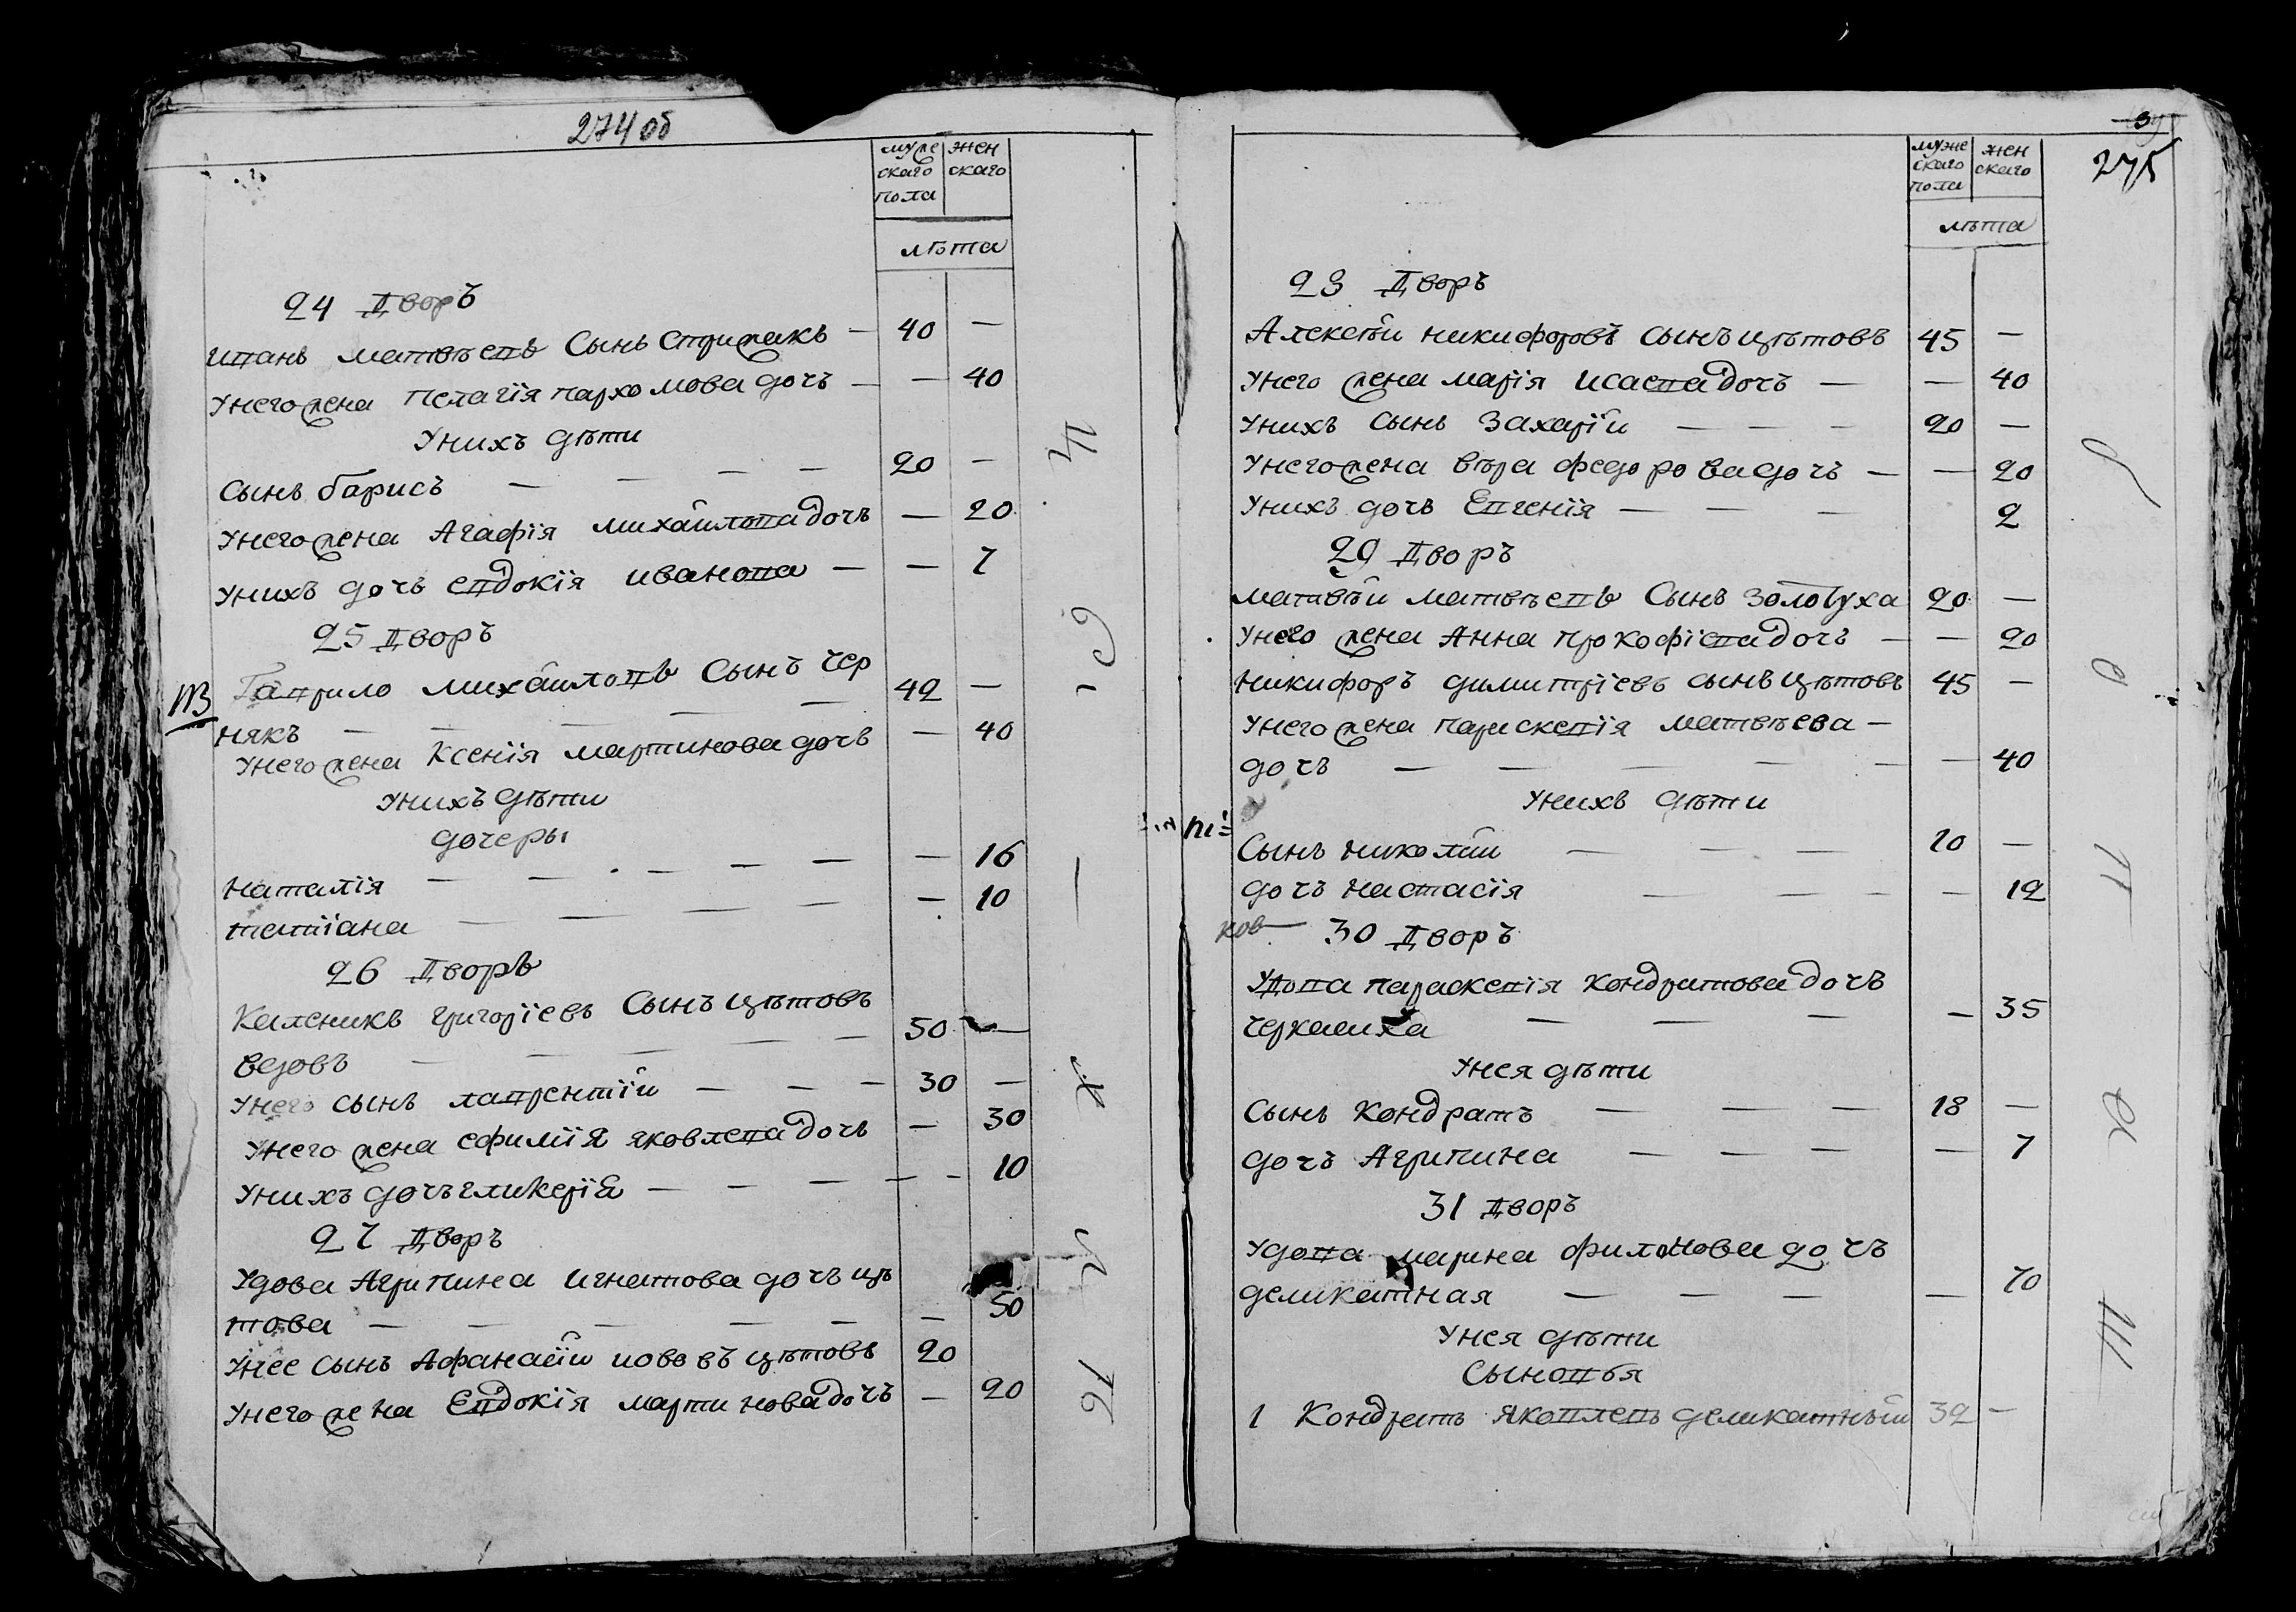 274 об
муже ског пола
женскаго
лѣта
24 Дворъ
Иванъ Матвѣевъ Сынъ Стрижакъ — 40 —
У него жена Пелагія Пархомова дочь — — 40
У нихъ дѣти
Сынъ барисъ — — — — 20 —
У него жена Агафія Михайлова дочь — 20
У нихъ дочь Евдокія Иванова — — 7
25 Дворъ
Гаврило Михайловъ Сынъ Чер
някъ — — — — — 42 —
У него жена Ксенія Мартинова дочь — 40
У нихъ дѣти
дочеры
Наталія — — — — — — 16
татіана — — — — — 10
26 Дворъ
Каленикъ Григоріевъ Сынъ Цѣтовъ
вдовъ — — — — — 50 —
У него сынъ Лаврентій — — — 30 —
У него жена Ефимія Яковлева дочь — 30
У нихъ дочь Гликерія — — — — — 10
27 Дворъ
Удова Агрипина Игнатова дочь Цѣ
това — — — — — — 50
У нее сынъ Афанасій Іововъ Цѣтовъ 20
У него жена Евдокія Мартинова дочь — 20
275
муже скаго пола
женскаго
лѣта
23 Дворъ
Алексѣй Никифоровъ сынъ Цѣтовъ 45 —
У него жена Марія Исаева дочь — — 40
У нихъ сынъ Захарій — — — 20 —
У него жена Вѣра Федорова дочь — — 20
У нихъ дочь Евгенія — — — 2
29 Дворъ
Матвѣй Матвѣевъ Сынъ Золотуха 20 —
У него жена Анна Прокофіева дочь — — 20
Никифоръ Димитріевъ сынъ Цѣтовъ 45 —
У него жена Парискевія Матвѣева —
дочь — — — — — — 40
У нихъ дѣти
Сынъ Николай — — — 10 —
дочь Настасія — — — — 12
30 Дворъ
Удова Параскевія Кондратова дочь
Черкашиха — — — — 35
У нея дѣти
Сынъ Кондратъ — — — 18 —
дочь Агрипина — — — — 7
31 Дворъ
Удова Марина Филонова дочь
Деликатная — — — — 70
У нея дѣти
Сыновья
1 Кондратъ Яковлевъ Деликатный 32 —